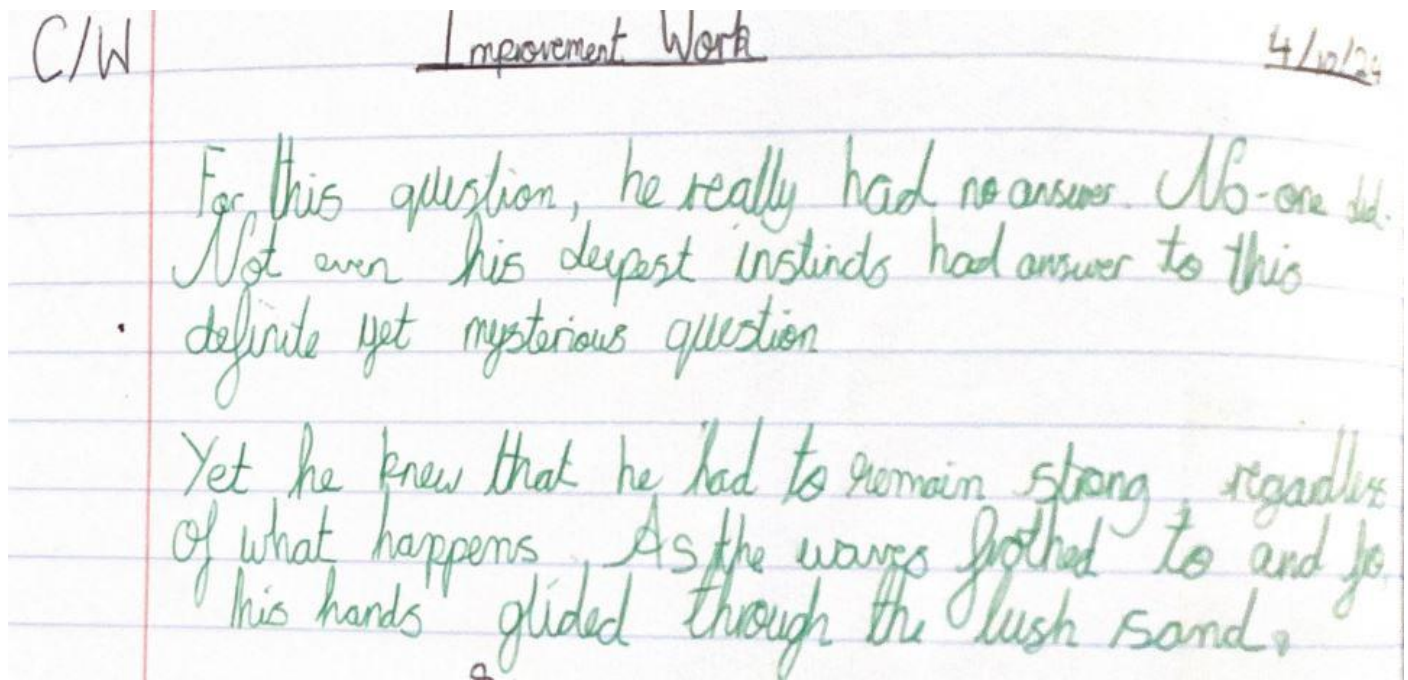 C/W Improvement Work 4/10/24
For this question, he really had no answer. No-one did.
Not even his deepest instincts had answer to this
definite yet mysterious question
Yet he knew that he had to remain strong, regardless
of what happens. As the waves frothed to and fro,
his hands glided through the lush sand.